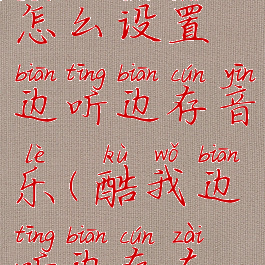 怎么设置
biān tīng biān cún yīn
边听边存音
lè kù wǒ biān
乐(酷我边
tīng biān cún zài
听边存在